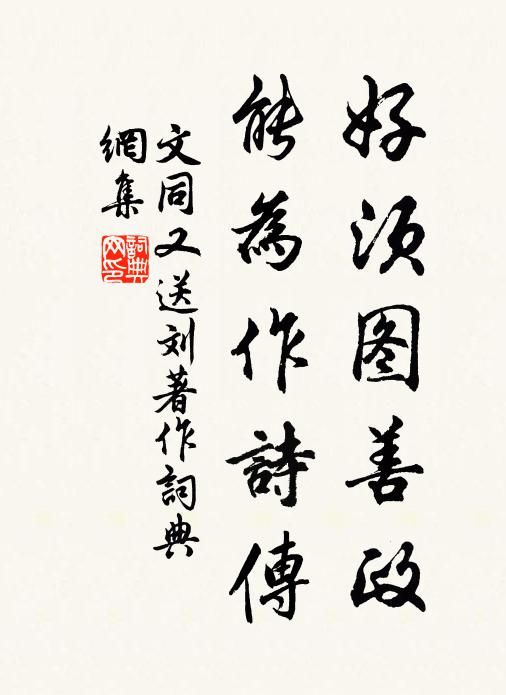 好須图善政
能為作詩傳
文同又送刘著作詞典
網集
詞典
网印